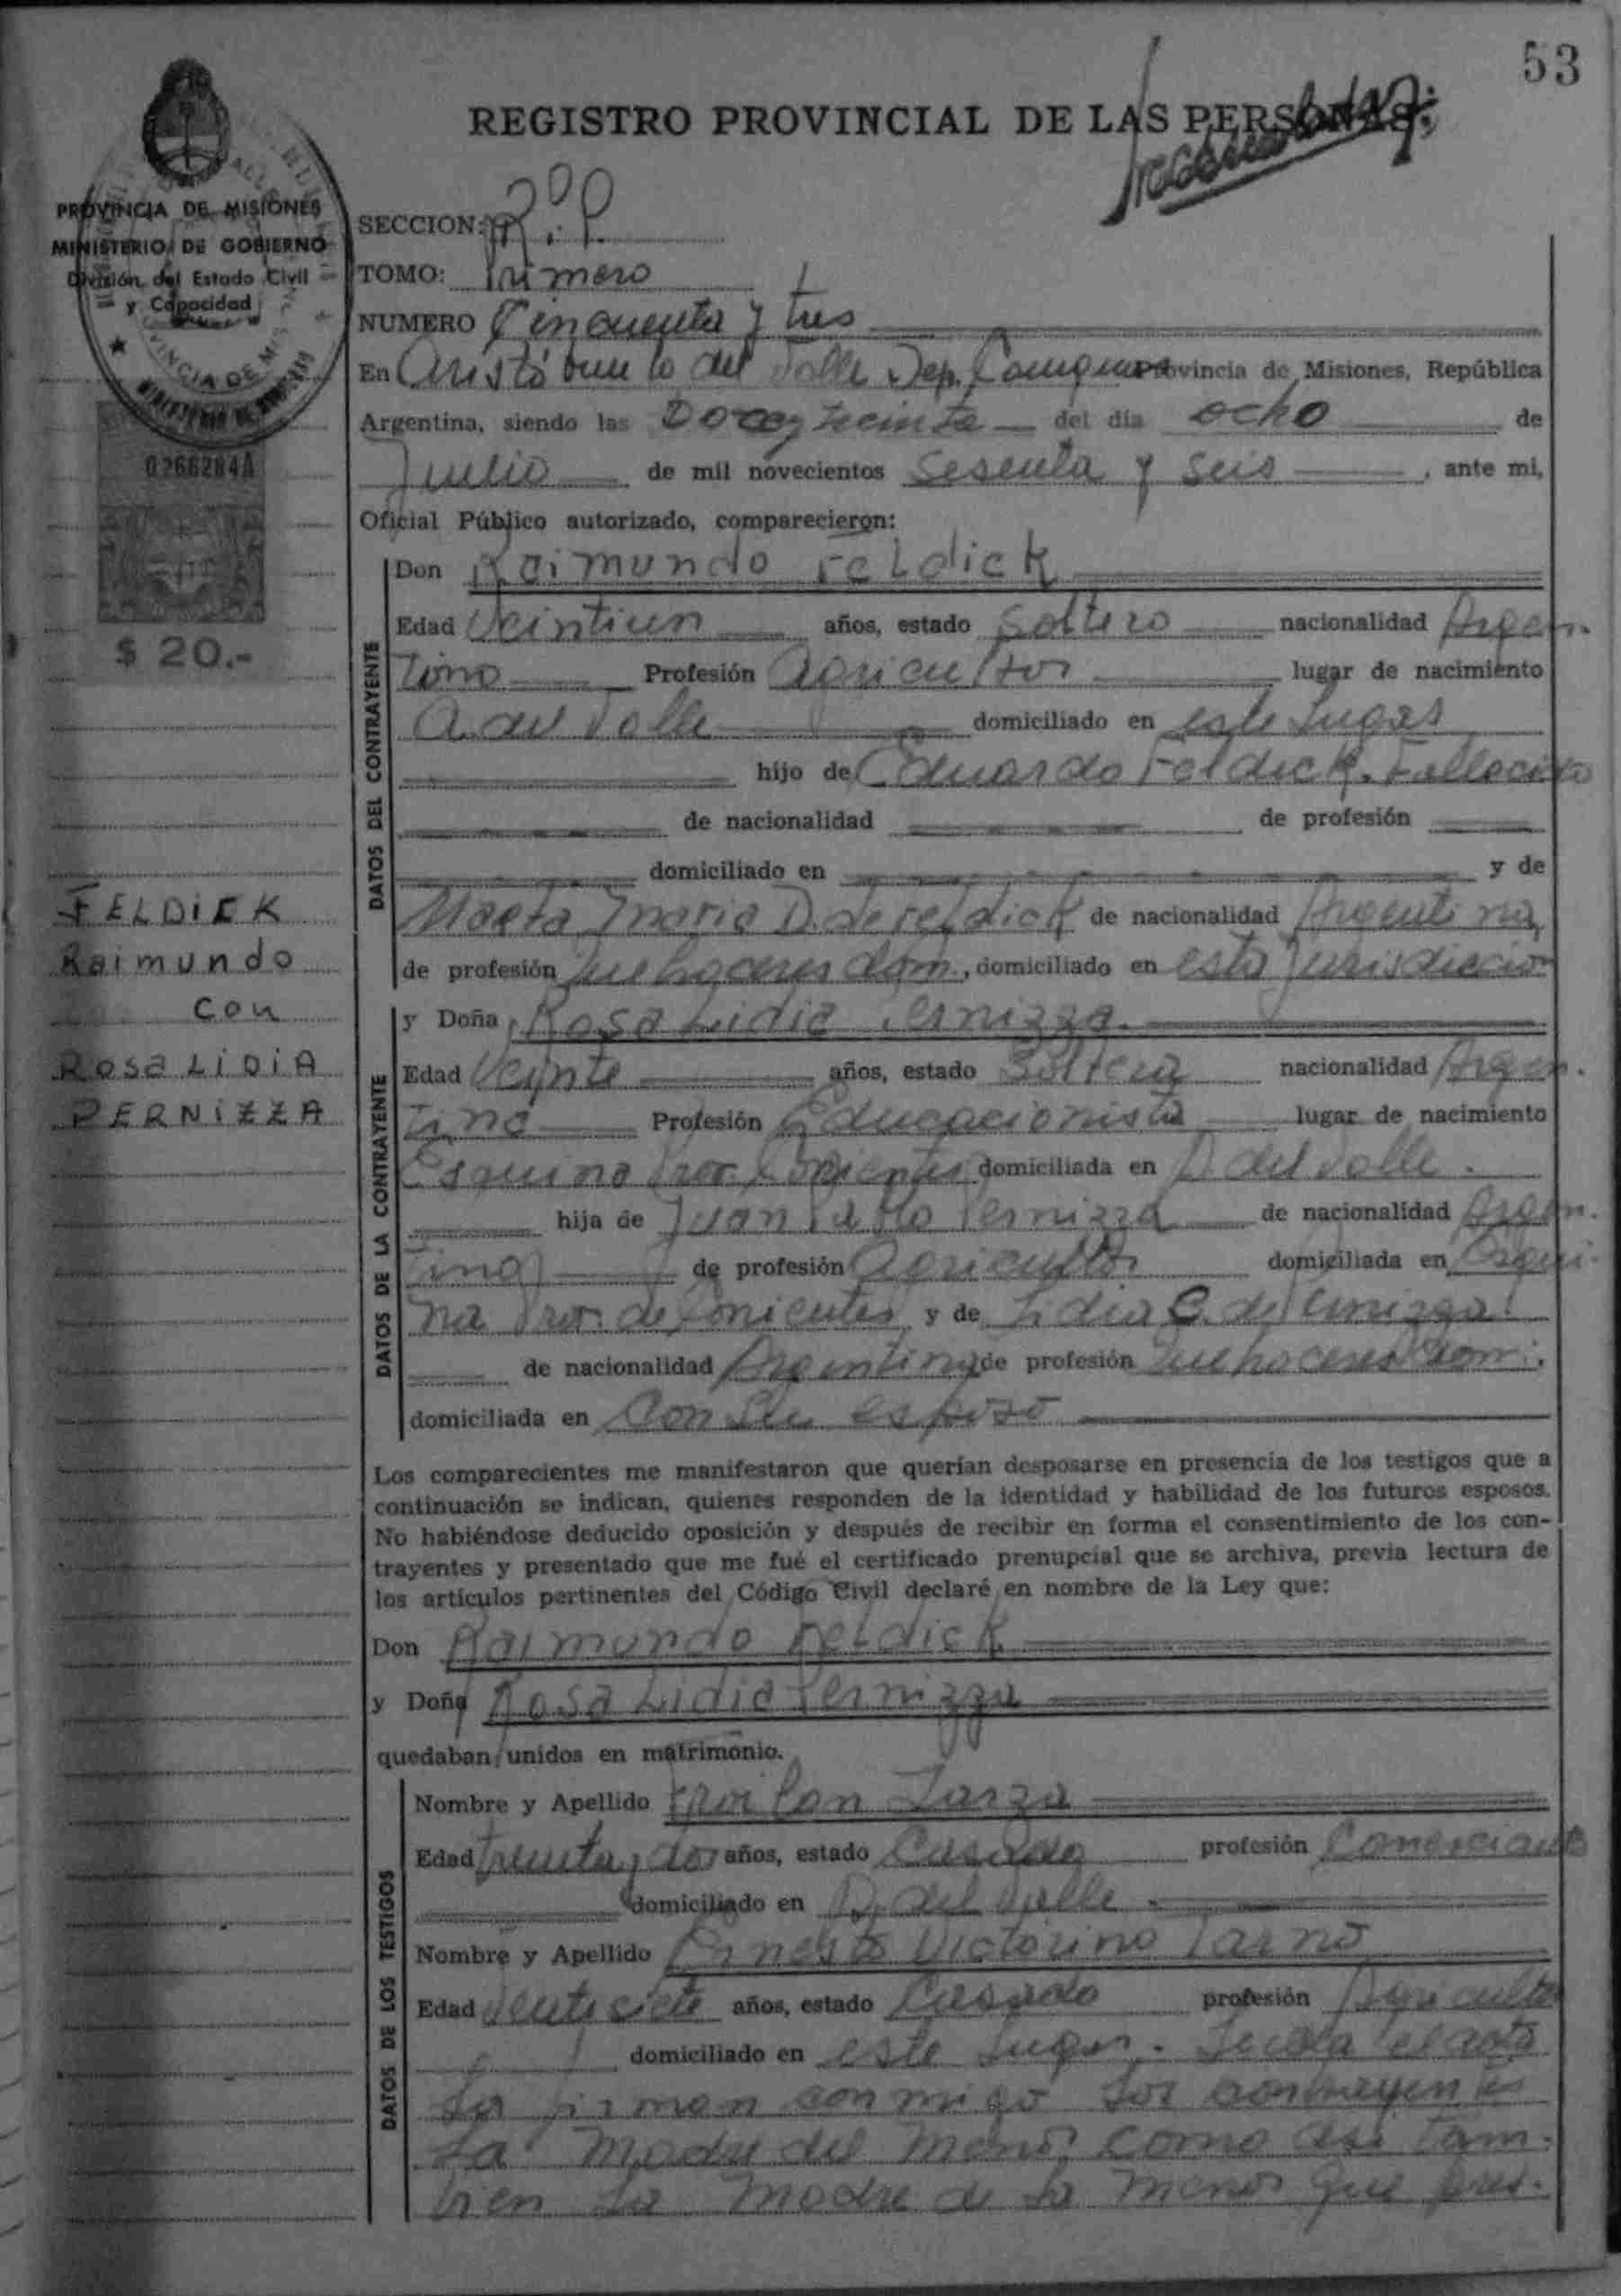 53
REGISTRO PROVINCIAL DE LAS PERSONAS
PROVINCIA DE MISIONES
MINISTERIO DE GOBIERNO
División del Estado Civil
y Capacidad
0266284A
$ 20.-
FELDICK
Raimundo
con
Rosa LiDiA
PERNiZZA
SECCION:
TOMO: Primero
NUMERO Cincuenta y tres
En Aristóbulo del Valle Dep. Provincia de Misiones, República
Argentina, siendo las Doce y treinta del día ocho de
Julio de mil novecientos Sesenta y Seis, ante mi,
Oficial Público autorizado, comparecieron:
DATOS DEL CONTRAYENTE
Don Raimundo Feldick
Edad Veintiun años, estado Soltero nacionalidad Argen-
tino Profesión Agricultor lugar de nacimiento
A. del Valle domiciliado en este Lugar
hijo de Eduardo Feldick. Fallecido
de nacionalidad de profesión
domiciliado en y de
Maria D. de Feldick de nacionalidad Argentina,
de profesión Quehaceres dom., domiciliado en esta Jurisdiccion
DATOS DE LA CONTRAYENTE
y Doña Rosa Lidia Pernizza.
Edad Veinte años, estado Soltera nacionalidad Argen-
tina Profesión Educacionista lugar de nacimiento
Esquina Prov. Corrientes domiciliada en A. del Valle.
hija de Juan Pablo Pernizza de nacionalidad Argen-
tina de profesión Agricultor domiciliada en Esqui-
na Prov. de Corrientes y de Lidia C. de Pernizza.
de nacionalidad Argentina de profesión Quehaceres Dom.
domiciliada en Con Su esposo
Los comparecientes me manifestaron que querían desposarse en presencia de los testigos que a
continuación se indican, quienes responden de la identidad y habilidad de los futuros esposos.
No habiéndose deducido oposición y después de recibir en forma el consentimiento de los con-
trayentes y presentado que me fué el certificado prenupcial que se archiva, previa lectura de
los artículos pertinentes del Código Civil declaré en nombre de la Ley que:
Don Raimundo Feldick
y Doña Rosa Lidia Pernizza
quedaban unidos en matrimonio.
DATOS DE LOS TESTIGOS
Nombre y Apellido Froilan Zarza
Edad treinta y dos años, estado Casado profesión Comerciante
domiciliado en A. del Valle.
Nombre y Apellido Ernesto Victorino
Edad Veintisiete años, estado Casado profesión Agricultor
domiciliado en este Lugar. Leida el acta
La firman conmigo Los contrayentes
La Madre del menor como asi tam-
bien La Madre de La menor que pres-